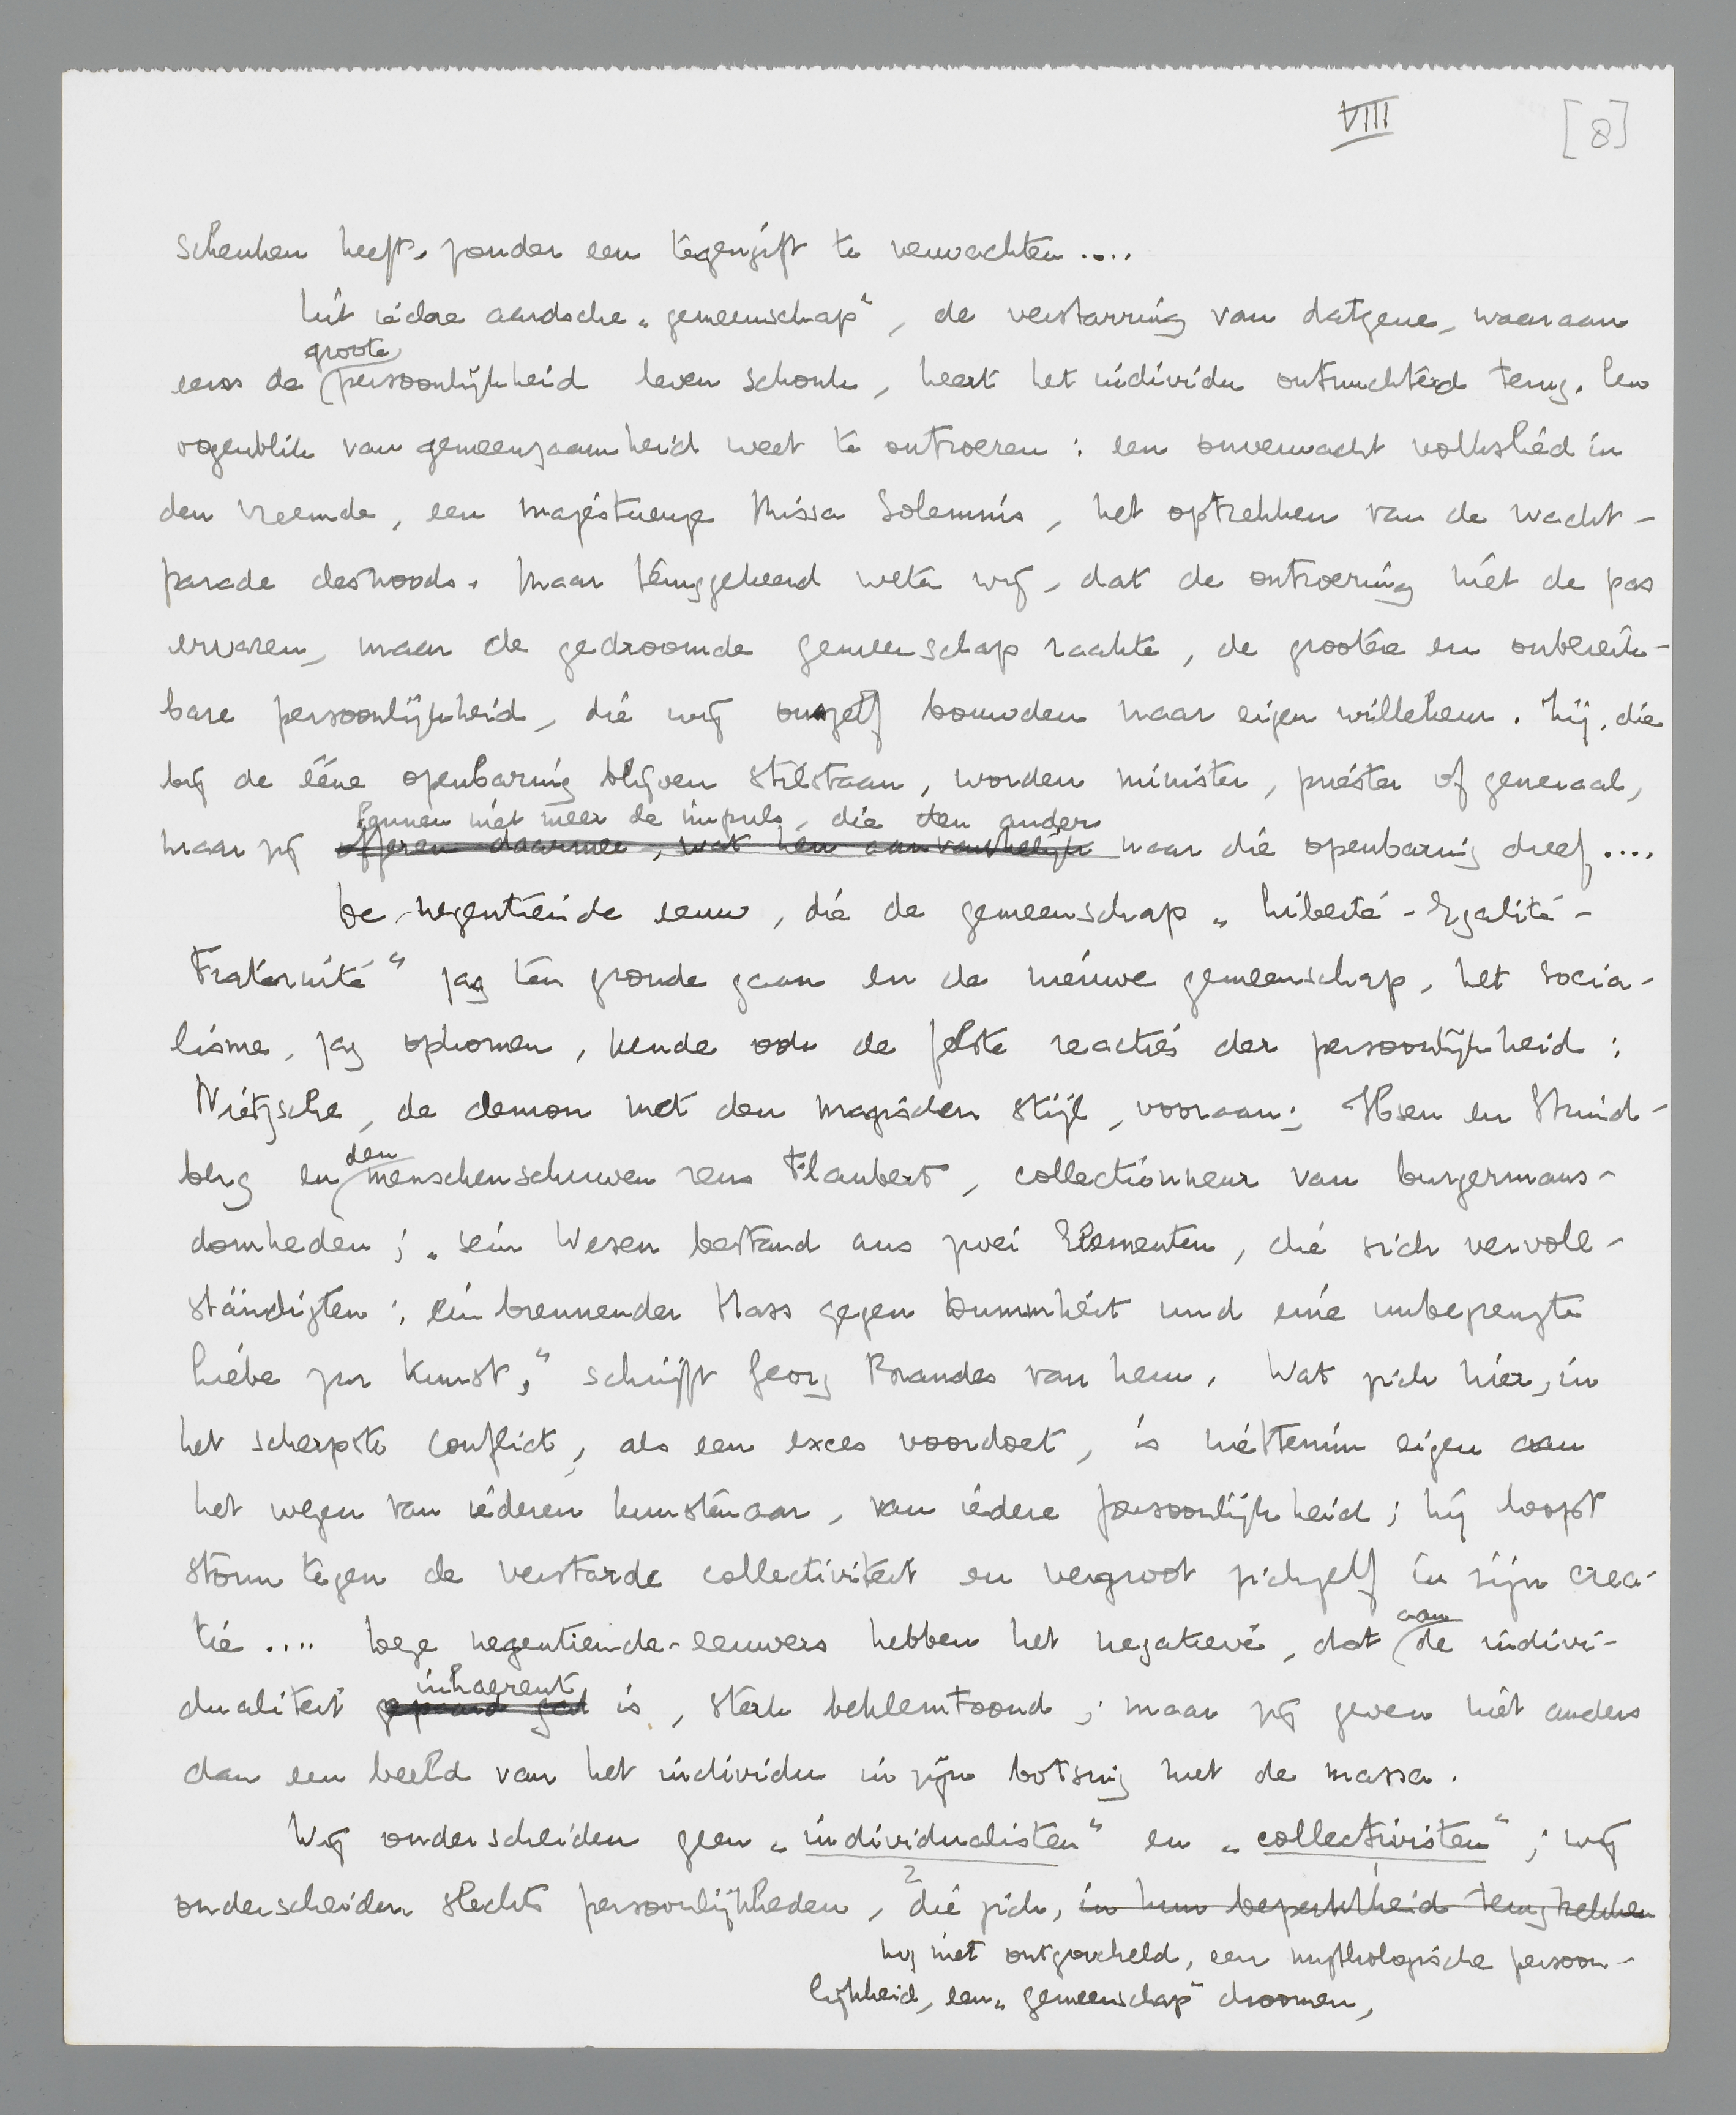 VIII [8]
schenken heeft, zonder een tegengift te verwachten....
Uit iedere aardsche „gemeenschap", de verstarring van datgene, waaraan
groote
eens de persoonlijkheid leven schonk, keert het individu ontnuchterd terug. Een
oogenblik van gemeenzaamheid weet te ontroeren: een onverwacht volkslied in
den vreemde, een majestueuze Missa Solemnis, het optrekken van de wacht-
parade desnoods. Maar teruggekeerd weten wij, dat de ontroering niet de pas
ervaren, maar de gedroomde gemeenschap raakte, de grootere en onbereik-
bare persoonlijkheid, die wij onszelf bouwden naar eigen willekeur. Zij, die
bij de ééne openbaring blijven stilstaan, worden minister, priester of generaal,
kennen niet meer de impuls, die den ander
maar zij offeren daarmee, wat hen aanvankelijk naar die openbaring dreef....
De negentiende eeuw, die de gemeenschap „Liberté-Egalité-
Fraternité" zag ten gronde gaan en de nieuwe gemeenschap, het socia-
lisme, zag opkomen, kende ook de felste reacties der persoonlijkheid:
Nietzsche, de demon met den magischen stijl, vooraan; Ibsen en Strind-
den
berg en menschenschuwen reus Flaubert, collectionneur van burgermans-
domheden; „sein Wesen bestand aus zwei Elementen, die sich vervoll-
ständigten: ein brennender Hass gegen Dummheit und eine unbegrenzte
Liebe zur Kunst," schrijft Georg Brandes van hem. Wat zich hier, in
het scherpste conflict, als een exces voordoet, is niettemin eigen aan
het wezen van iederen kunstenaar, van iedere persoonlijkheid; hij loopt
storm tegen de verstarde collectiviteit en vergroot zichzelf in zijn crea-
aan
tie.... Deze negentiende-eeuwers hebben het negatieve, dat de indivi-
inhaerent
dualiteit gepaard gat is, sterk beklemtoond; maar zij geven niet anders
dan een beeld van het individu in zijn botsing met de massa.
Wij onderscheiden geen „individualisten" en „collectivisten"; wij
2
onderscheiden slechts persoonlijkheden, die zich, in hun beperktheid terugtrekken
nog niet ontgoocheld, een mythologische persoon-
lijkheid, een „gemeenschap" droomen,